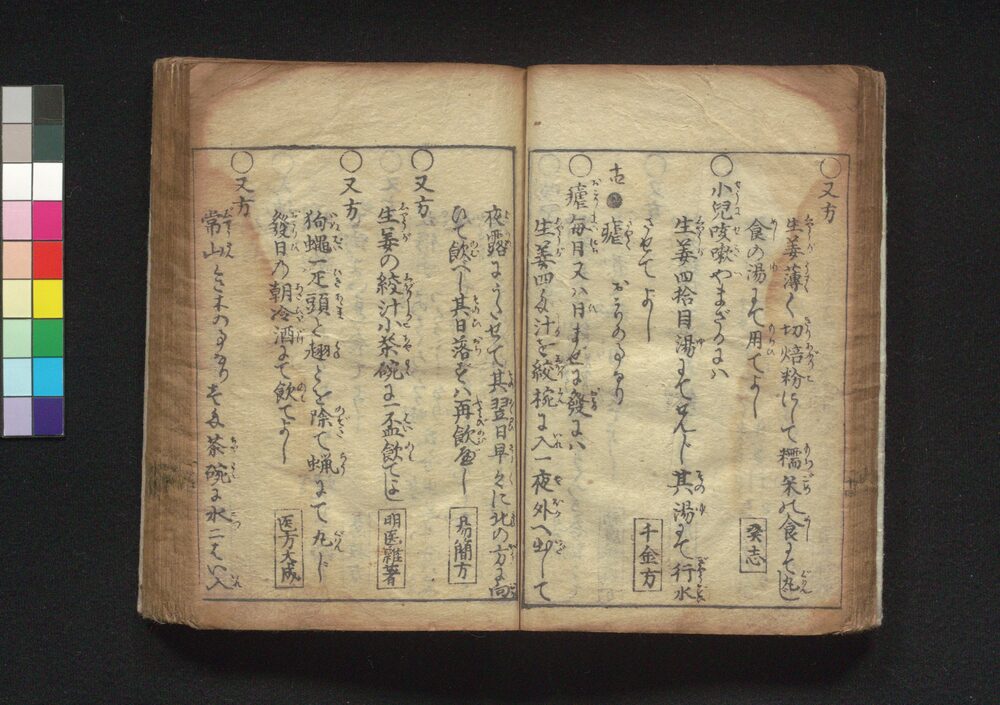 ○又方
生姜薄く切焙粉にして糯米の食にて丸し
食の湯にて用てよし
癸志
○小児咳嗽やまざるには
生姜四拾目湯にてせんじ其湯にて行水
させてよし
千金方
瘧 おこりの事なり
○瘧毎日又ハ日ませに發には
生姜四匁汁を絞椀に入一夜外へ出して
夜露にうたせて其翌日早々に北の方に向
いて飲べし其日落ずハ再飲べし
易簡方
○又方
生姜の絞汁小茶碗に一盃飲てよし
明医雑著
○又方
狗蝿一疋頭と翅とを除て蝋にて丸じ
發日の朝冷酒にて飲てよし
医方大成
○又方
常山 茶碗に水二はい入